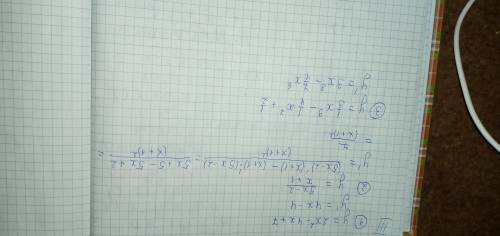 III
① y = 2x² - 4x + 7
y' = 4x - 4
② y = 5x-2 / x+1
y' = (5x-2)'(x+1) - (x+1)'(5x-2) / (x+1)² = 5x+5-5x+2 / (x+1)² =
= 7 / (x+1)²
③ y = 1/3 x⁹ - 1/4 x⁷ + 1/2
y' = 3x⁸ - 7/4 x⁶